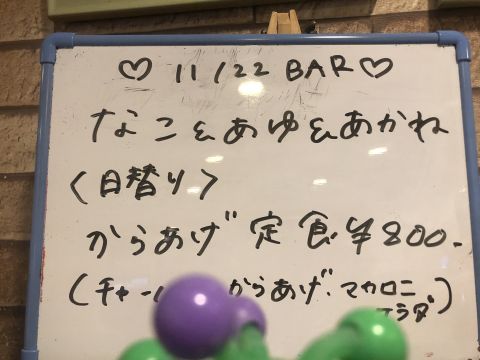 ♡ 11/22 BAR ♡
なこ&あゆ&あかね
<日替り>
からあげ定食 ¥800-
(チャー からあげ、マカロニ
ラダ)